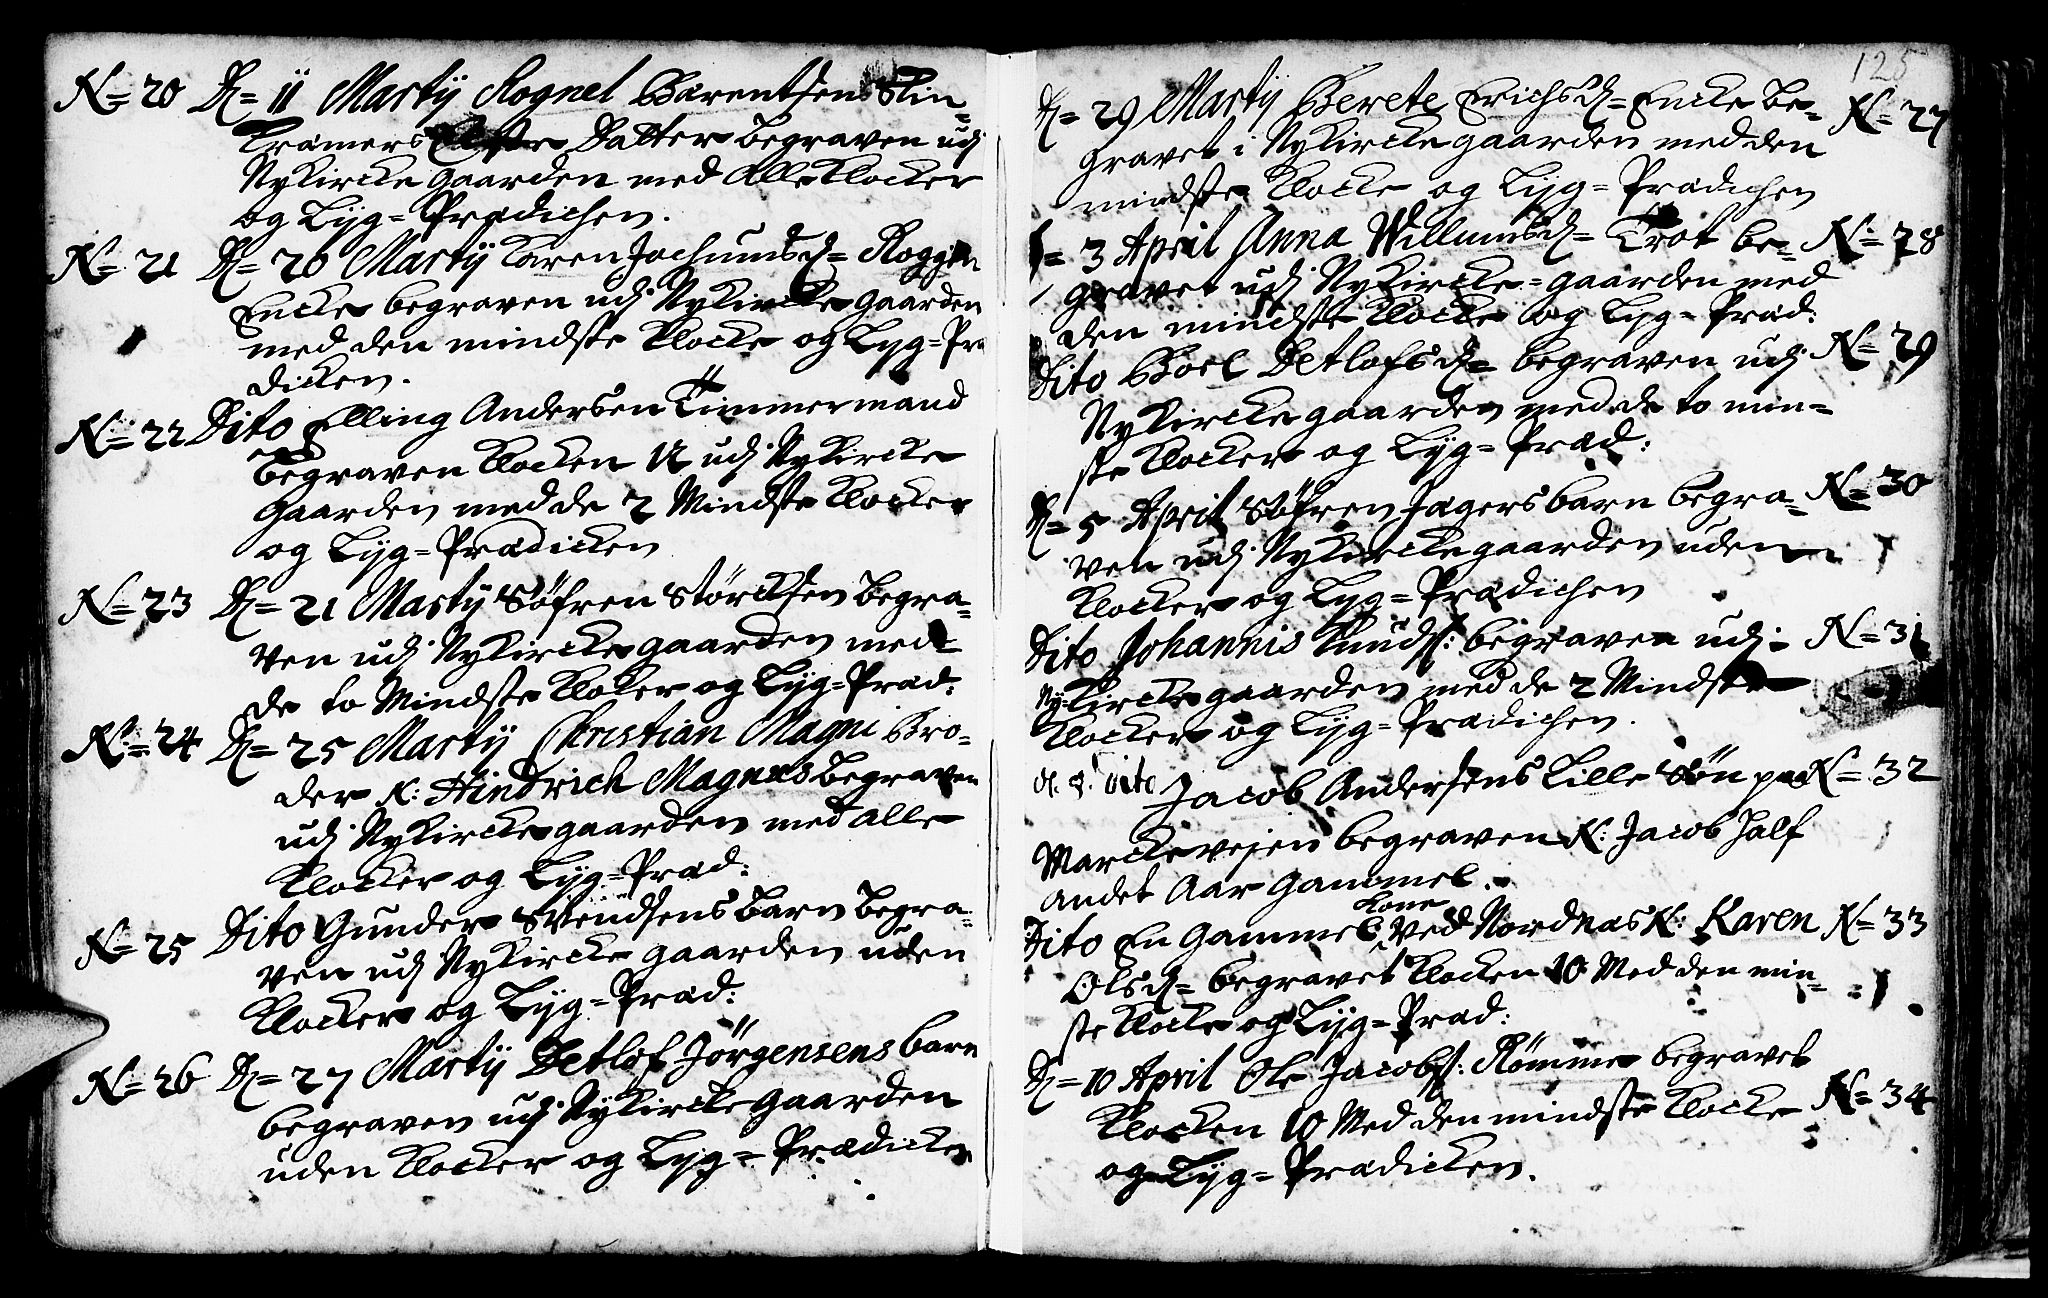 N= 20 D= 11 Martÿ Rognel Barentsen Skin=
kramers Datter begraven udj
Nykircke gaarden med Alle Klocker
og Lÿg=Prædichen.
N= 21 D= 20 Martÿ Karen Jochumsd= Roggen
Encke begraven udj Nykircke gaarden
med den mindste Klocke og Lyg=Præ
dicken.
N= 22 Dito Elling Andersen Timmermand
begraven Klocken 12 udj Nykircke
Gaarden med de 2 Mindste Klocker
og Lÿg=Prædicken
N= 23 D= 21 Martÿ Søfren Størcksen begra=
ven udj Nykircke gaarden med
de to Mindste Kloker og Lÿg=Præd:
N:= 24 D= 25 Martÿ Christian Magni Bro=
der N: Hindrich Magnus begraven
udj Nykircke gaarden med alle
Klocker og Lÿg=Præd:
N= 25 Dito Gunder Svendsens barn begra=
ven udj Nykircke gaarden uden
Klocker og Lÿg=Præd:
N= 26 D= 27 Martÿ Detlof Jörgensens barn
begraven udj Nykircke Gaarden
uden Klocker og Lyg=Prædicken
125
D= 29 Martÿ Berete Erichsd= Encke be= N= 27
gravet i Nykircke gaarden med den
mindste Klocke og Lÿg=Prædichen
D= 3 April Anna Willumsd= Trot be= N= 28
gravet udj Nykircke=gaarden med
den mindste Klocke og Lyg=Præd:
Dito Boel Detlofsd= begraven udj N= 29
Nykircke gaarden med de to min=
ste Klocker og Lÿg=Præd:
D= 5 April Søfren Jagers barn begra= N= 30
ven udj Nykircke gaarden uden
Klocker og Lÿg=Prædichen
Dito Johannis Knuds: begraven udj N= 31
Nÿkircke gaarden med de 2 Mindste
Klocker og Lÿg=Prædichen.
dito Jacob Andersens Lille Søn paa N= 32
Marckevejen begraven N: Jacob half
andet Aar Gammel.
Dito En Gammel Kone Ved Nordnæs N: Karen N= 33
Olsd= begravet Klocken 10 Med den min=
ste Klocke og Lÿg=Præd:
D= 10 April Ole Jacobs: Römme begravet
Klocken 10 Med den mindste Klocke N= 34
og Lÿg=Prædicken.